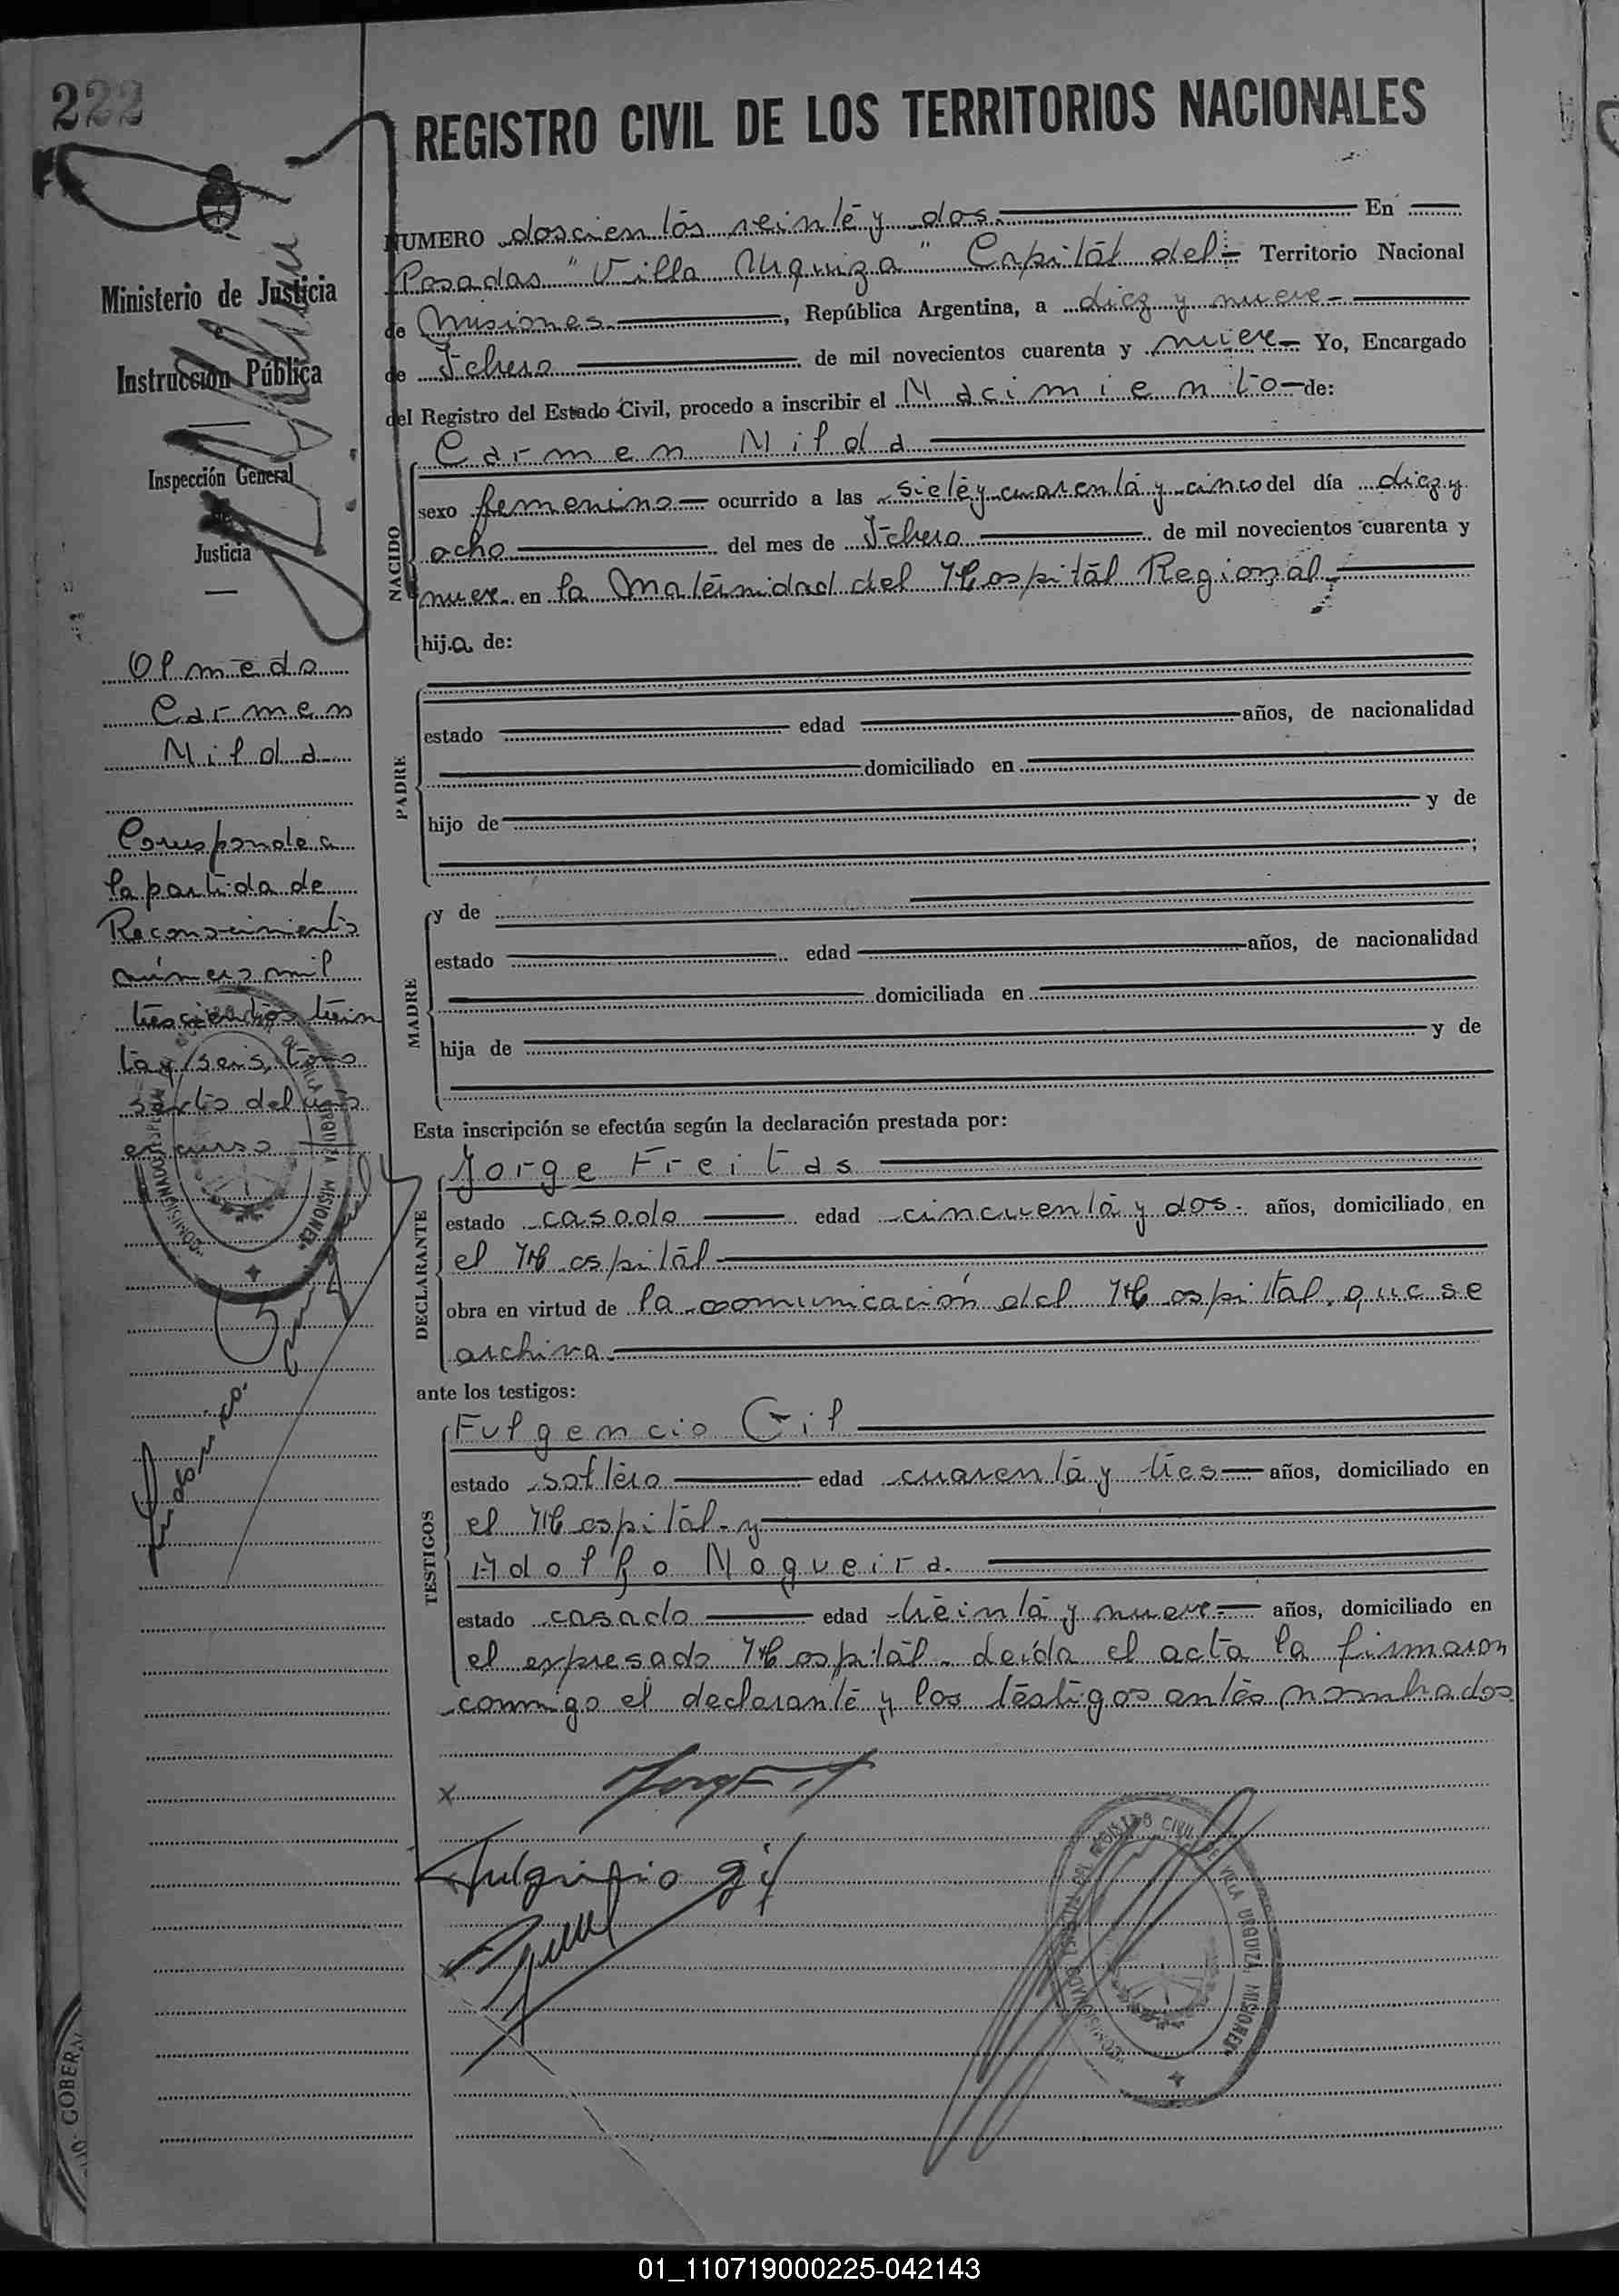 222
REGISTRO CIVIL DE LOS TERRITORIOS NACIONALES
Ministerio de Justicia
Instrucción Pública
Inspección General
Justicia
Olmedo
Carmen
Nilda
Corresponde a
la partida de
Reconocimiento
número mil
trescientos trein
ta y seis, tomo
sexto del año
en curso
NUMERO doscientos veinte y dos. En
Posadas "Villa Urquiza" Capital del Territorio Nacional
de Misiones, República Argentina, a diez y nueve
de Febrero de mil novecientos cuarenta y nueve Yo, Encargado
del Registro del Estado Civil, procedo a inscribir el Nacimiento de:
Carmen Nilda
NACIDO
sexo femenino ocurrido a las siete y cuarenta y cinco del día diez y
ocho del mes de Febrero de mil novecientos cuarenta y
nueve en la Maternidad del Hospital Regional,
hija de:
PADRE
estado edad años, de nacionalidad
domiciliado en
hijo de y de
;
MADRE
y de
estado edad años, de nacionalidad
domiciliada en
hija de y de
Esta inscripción se efectúa según la declaración prestada por:
DECLARANTE
Jorge Freitas
estado casado edad cincuenta y dos. años, domiciliado en
el Hospital
obra en virtud de la comunicación del Hospital, que se
archiva.
ante los testigos:
TESTIGOS
Fulgencio Gil
estado soltero edad cuarenta y tres años, domiciliado en
el Hospital y
Adolfo Nogueira.
estado casado edad treinta y nueve años, domiciliado en
el expresado Hospital. Leída el acta la firmaron
conmigo el declarante y los testigos antes nombrados
x
Fulgencio Gil
REGISTRO CIVIL DE VILLA URQUIZA MISIONES
01_110719000225-042143